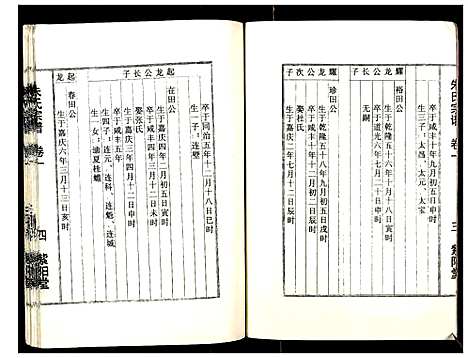 朱氏宗谱 卷一
三 紫阳堂
生三子：太昌、太元、太宝
耀龙公长子
裕田公
生于乾隆五十一年九月初五日寅时
卒于道光六年八月初六日申时
无嗣
耀龙公次子
珍田公
生于乾隆五十九年九月初五日戌时
卒于咸丰十年九月初三日辰时
娶杜氏
生于嘉庆二年七月十二日辰时
卒于同治五年十二月十八日戌时
生一子：连堃
起龙公长子
在田公
生于嘉庆四年二月初五日寅时
卒于咸丰四年三月十二日未时
娶张氏
生于嘉庆三年四月十二日申时
卒于咸丰五年二月十二日申时
生四子：连科、连魁、连城
生一女：适夏桂
起龙
春田公
生于嘉庆六年三月十三日亥时
朱氏宗谱 卷一
四 紫阳堂